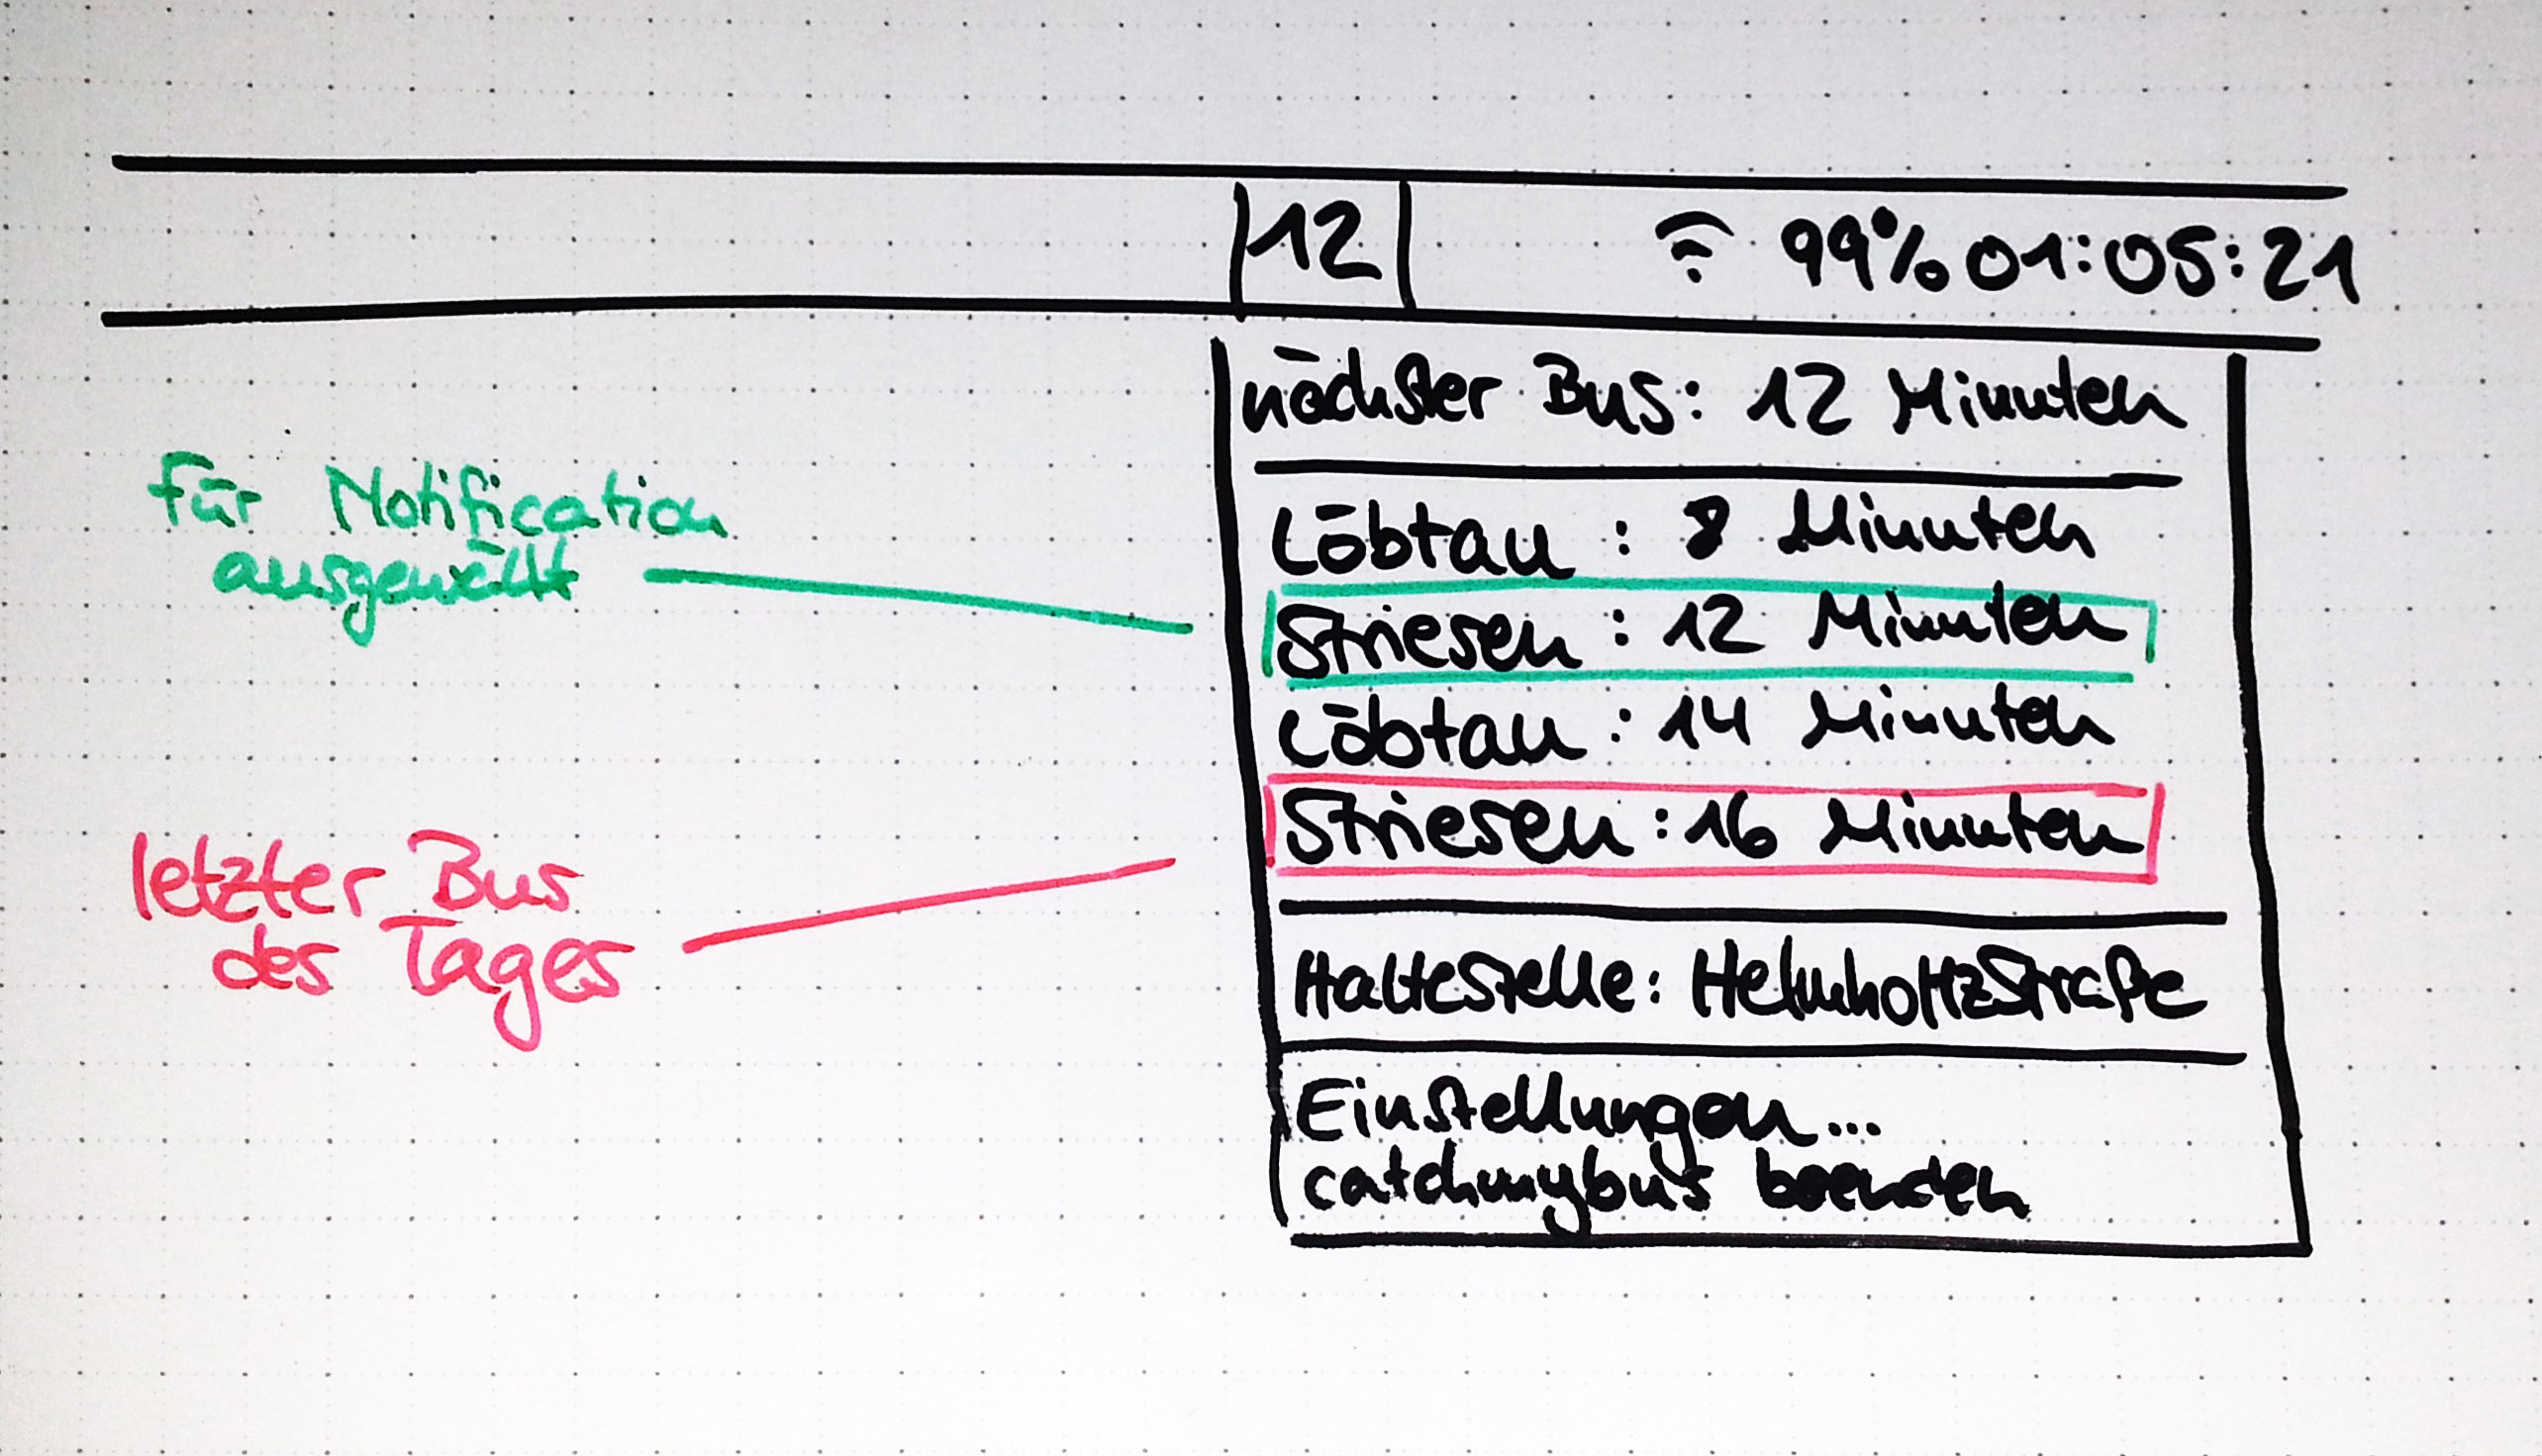 12 99% 01:05:21
nächster Bus: 12 Minuten
Löbtau : 8 Minuten
Striesen : 12 Minuten
Löbtau : 14 Minuten
Striesen : 16 Minuten
Haltestelle: Helmholtzstraße
Einstellungen...
catchmybus beenden
für Notification
ausgewählt
letzter Bus
des Tages